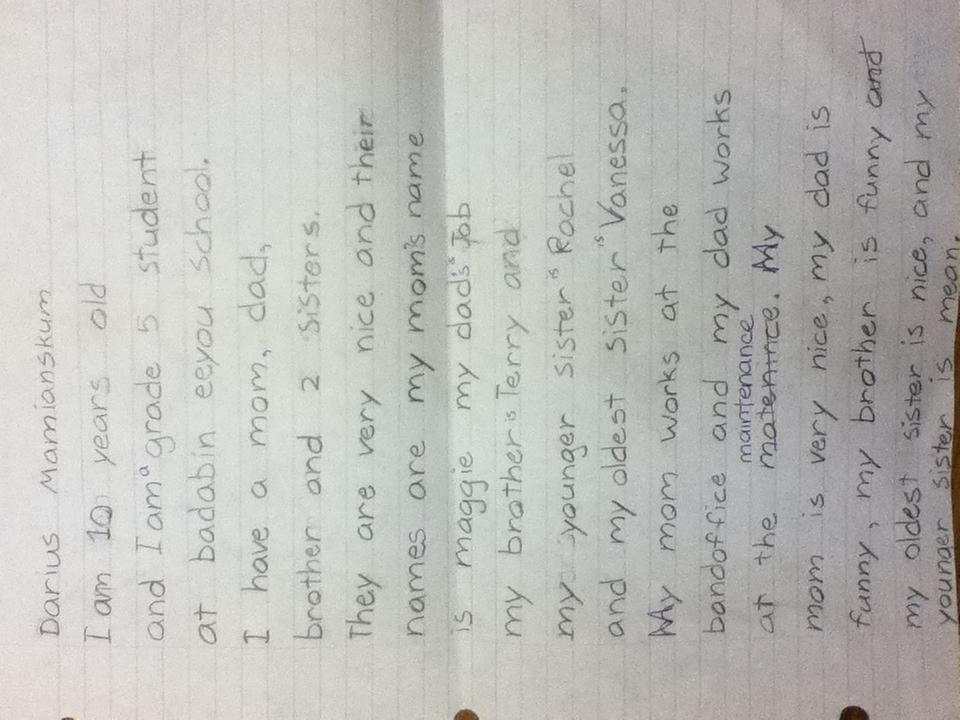 Darius Mamianskum
I am 10 years old
and I am a grade 5 student
at badabin eeyou school.
I have a mom, dad,
brother and 2 sisters.
They are very nice and their
names are my mom's name
is maggie my dad's is Job
my brother is Terry and
my younger sister is Rachel
and my oldest sister is Vanessa.
My mom works at the
bandoffice and my dad works
maintenance
at the matentrce. My
mom is very nice, my dad is
funny, my brother is funny and
my oldest sister is nice, and my
younger sister is mean.